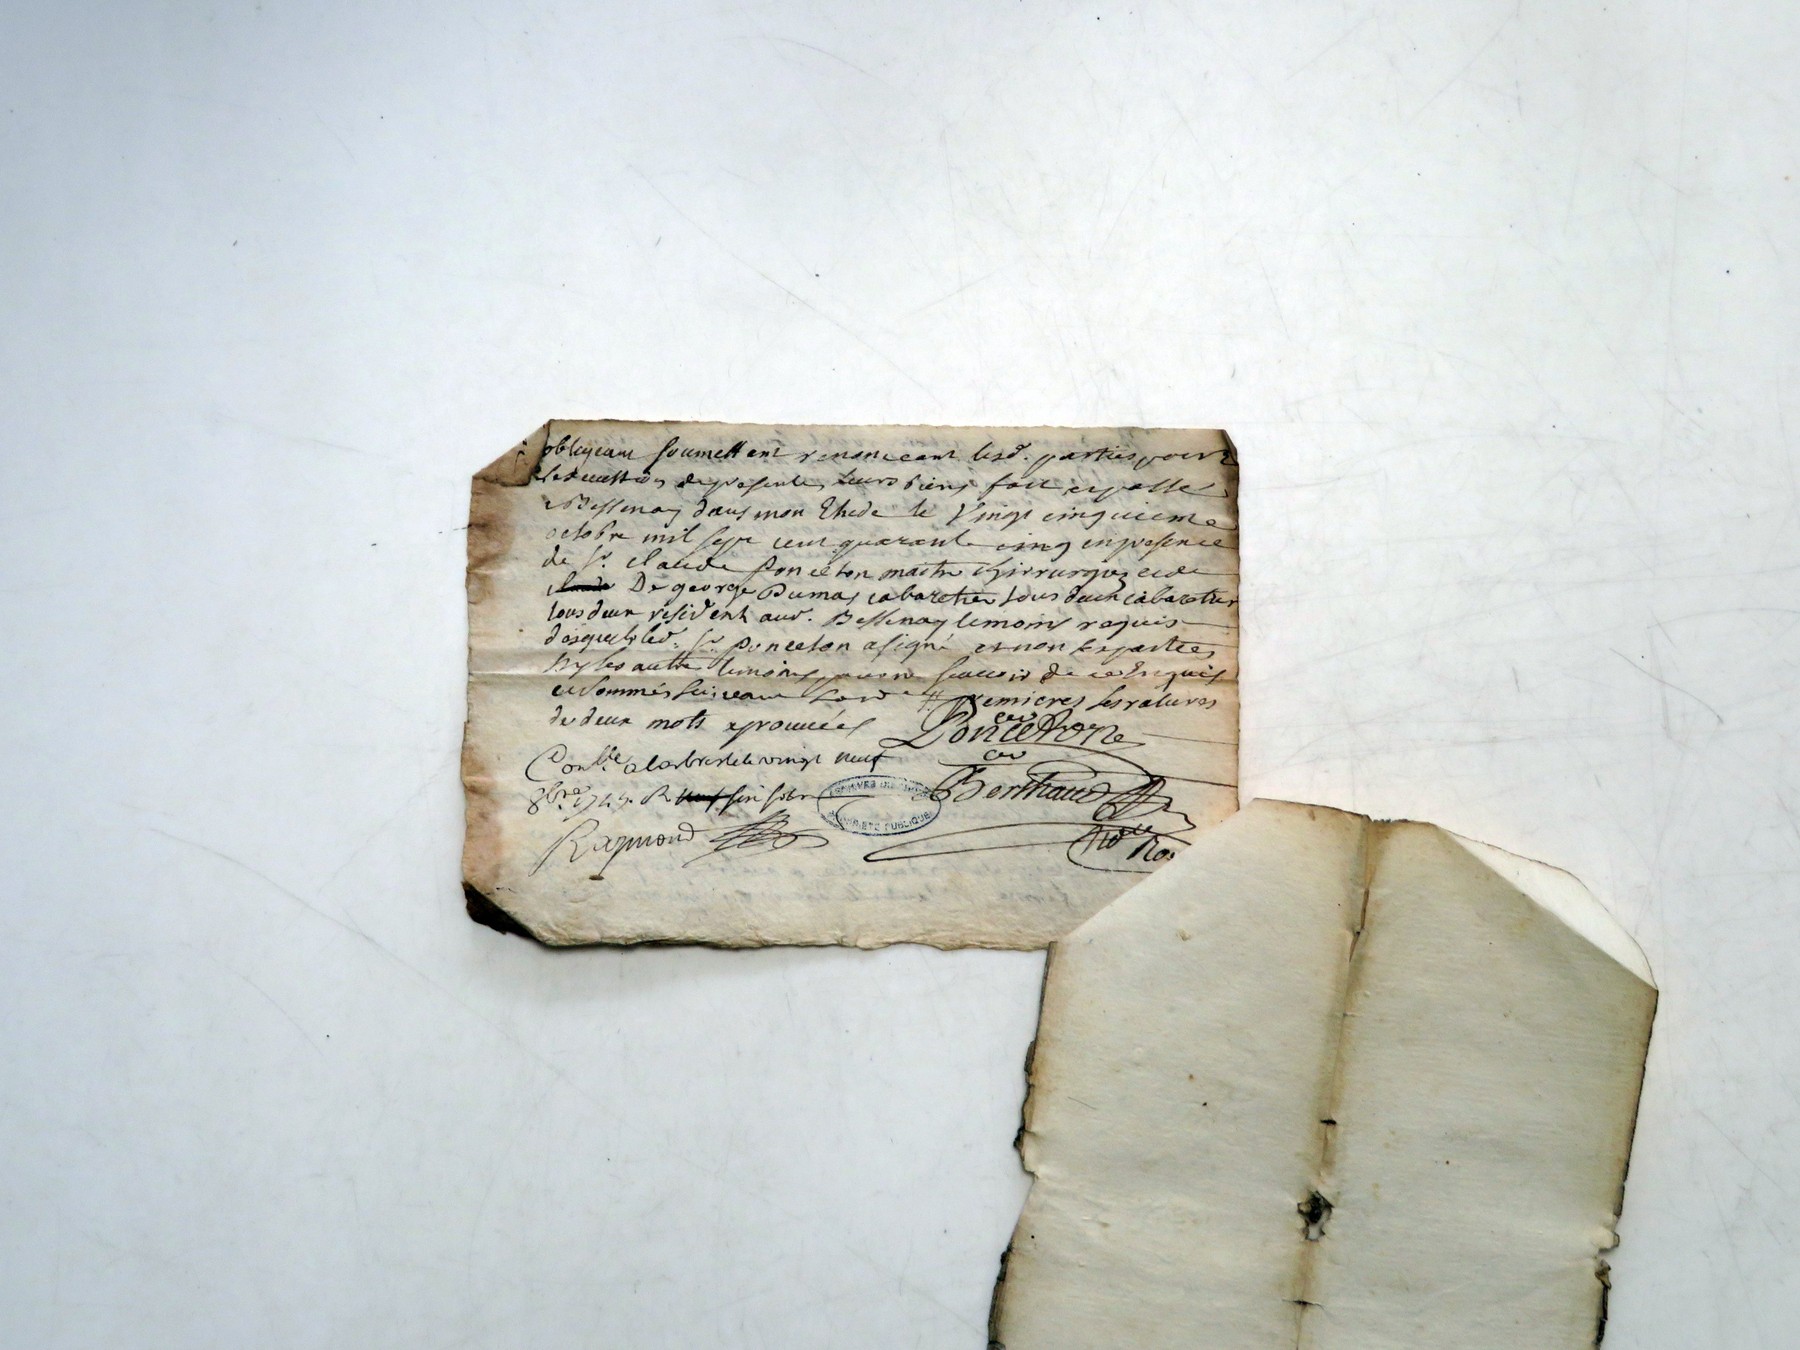 obligeant soumettant renonceant lesd. parties pour
de presentes leurs biens fait et passé
a Bessenay dans mon Etude le Vingt cinquieme
octobre mil sept cent quarante cinq en presence
de Sr. claude Ponceton maitre chirurgien et de
De george Dumas cabaretier tous deux cabaretier
tous deux resident aud. Bessenay temoins requis
desquels led. Sr. ponceton a signé et non les parties
Ny les autre temoins pour ne scavoir de ce Enquis
et sommés suivant lord premieres les ratures
de deux mots aprouvées
Ponceton
Conlle a larbresle le vingt neuf
8bre 1745. R six sols
Berthaud
ARCHIVES
PROPRIETE PUBLIQUE
Raymond